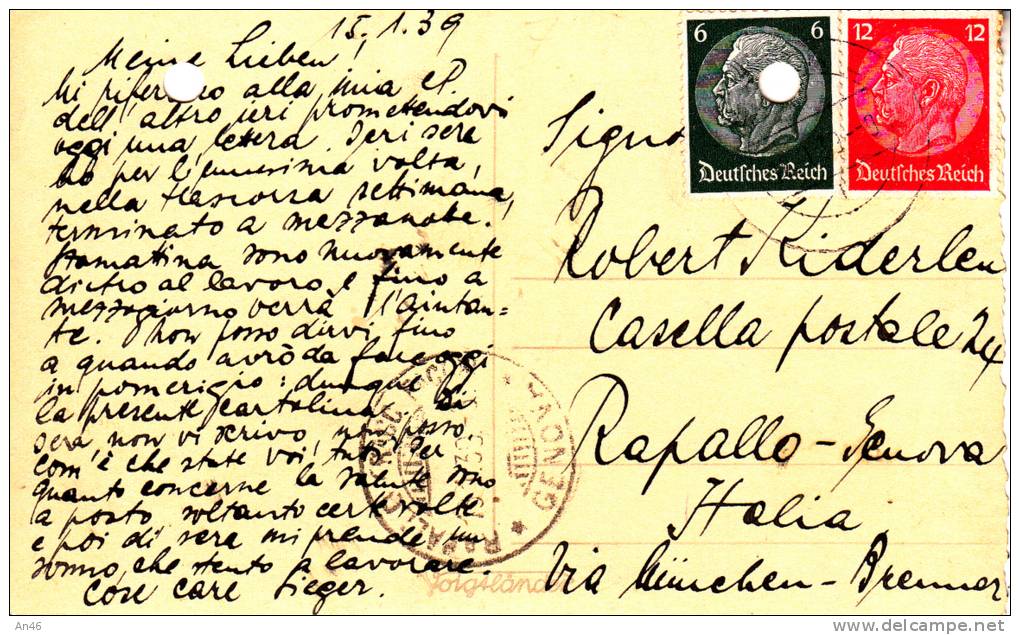 15.1.39
Meine Lieben!
Mi riferisco alla mia CP.
dell'altro ieri promettendovi
oggi una lettera. Ieri sera
ho per l'ennesima volta,
nella trascorsa settimana,
terminato a mezzanotte.
Stamattina sono nuovamente
dietro al lavoro e fino a
mezzogiorno verrà l'aiutan=
te. Non posso dirvi fino
a quando avrò da fare oggi
in pomerigio: dunque
la presente cartolina. Di
sera non vi scrivo, non posso.
Com'è che state voi, tutti? Per
quanto concerne la salute sono
a posto, soltanto certe volte
e poi di sera mi prende un
sonno, che stento a lavorare.
Cose care Sieger.
6 6
Deutsches Reich
12 12
Deutsches Reich
Signo
Robert Kiderlen
Casella postale 24
Rapallo - Genova
Italia
Via München - Brenner
GENOVA
Voigtländer
An46
delcampe.net